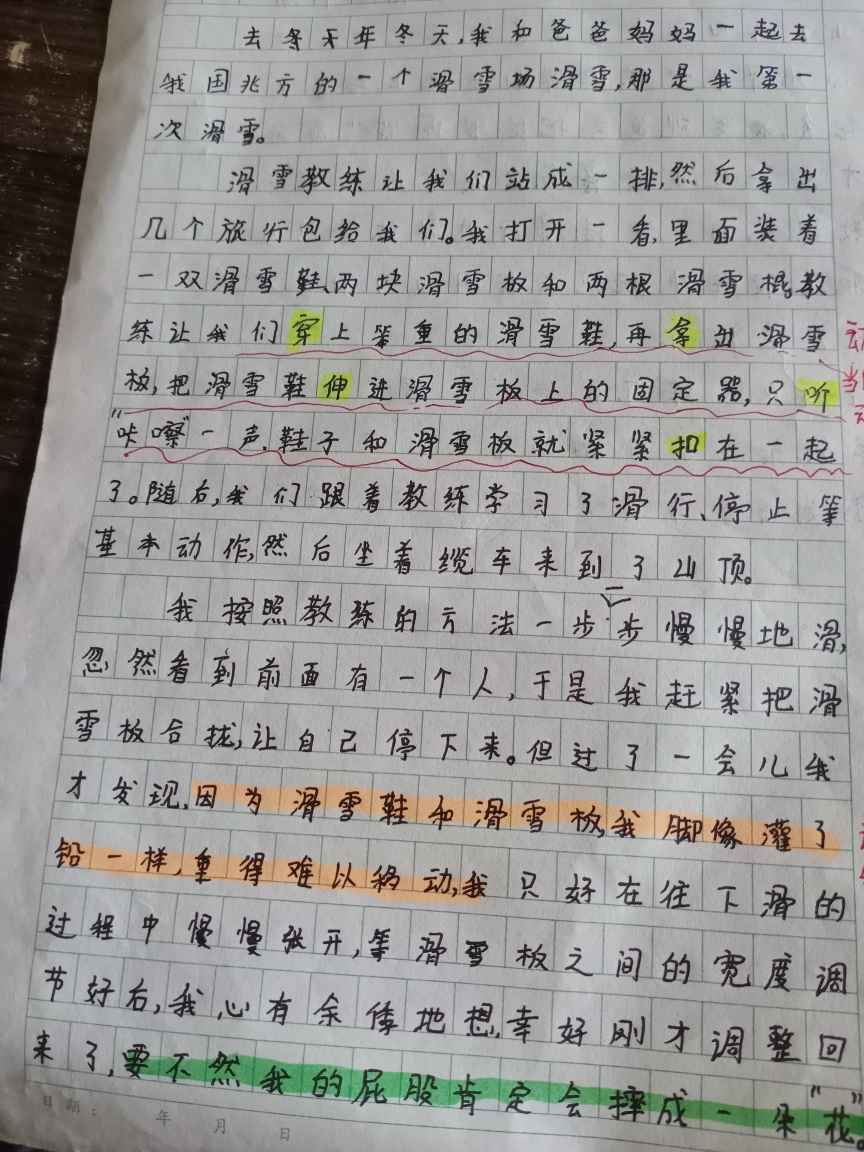 去年冬天,我和爸爸妈妈一起去
我国北方的一个滑雪场滑雪,那是我第一
次滑雪。
滑雪教练让我们站成一排,然后拿出
几个旅行包给我们。我打开一看,里面装着
一双滑雪鞋、两块滑雪板和两根滑雪棍,教
练让我们穿上笨重的滑雪鞋,再拿出滑雪
板,把滑雪鞋伸进滑雪板上的固定器,只听
“咔嚓”一声,鞋子和滑雪板就紧紧扣在一起
了。随后,我们跟着教练学习了滑行、停止等
基本动作,然后坐着缆车来到了山顶。
我按照教练的方法一步步慢慢地滑,
忽然看到前面有一个人,于是我赶紧把滑
雪板合拢,让自己停下来。但过了一会儿我
才发现,因为滑雪鞋和滑雪板,我脚像灌了
铅一样,重得难以移动,我只好在往下滑的
过程中慢慢张开,等滑雪板之间的宽度调
节好后,我心有余悸地想,幸好刚才调整回
来了,要不然我的屁股肯定会摔成一朵“花”。
日期: 年 月 日